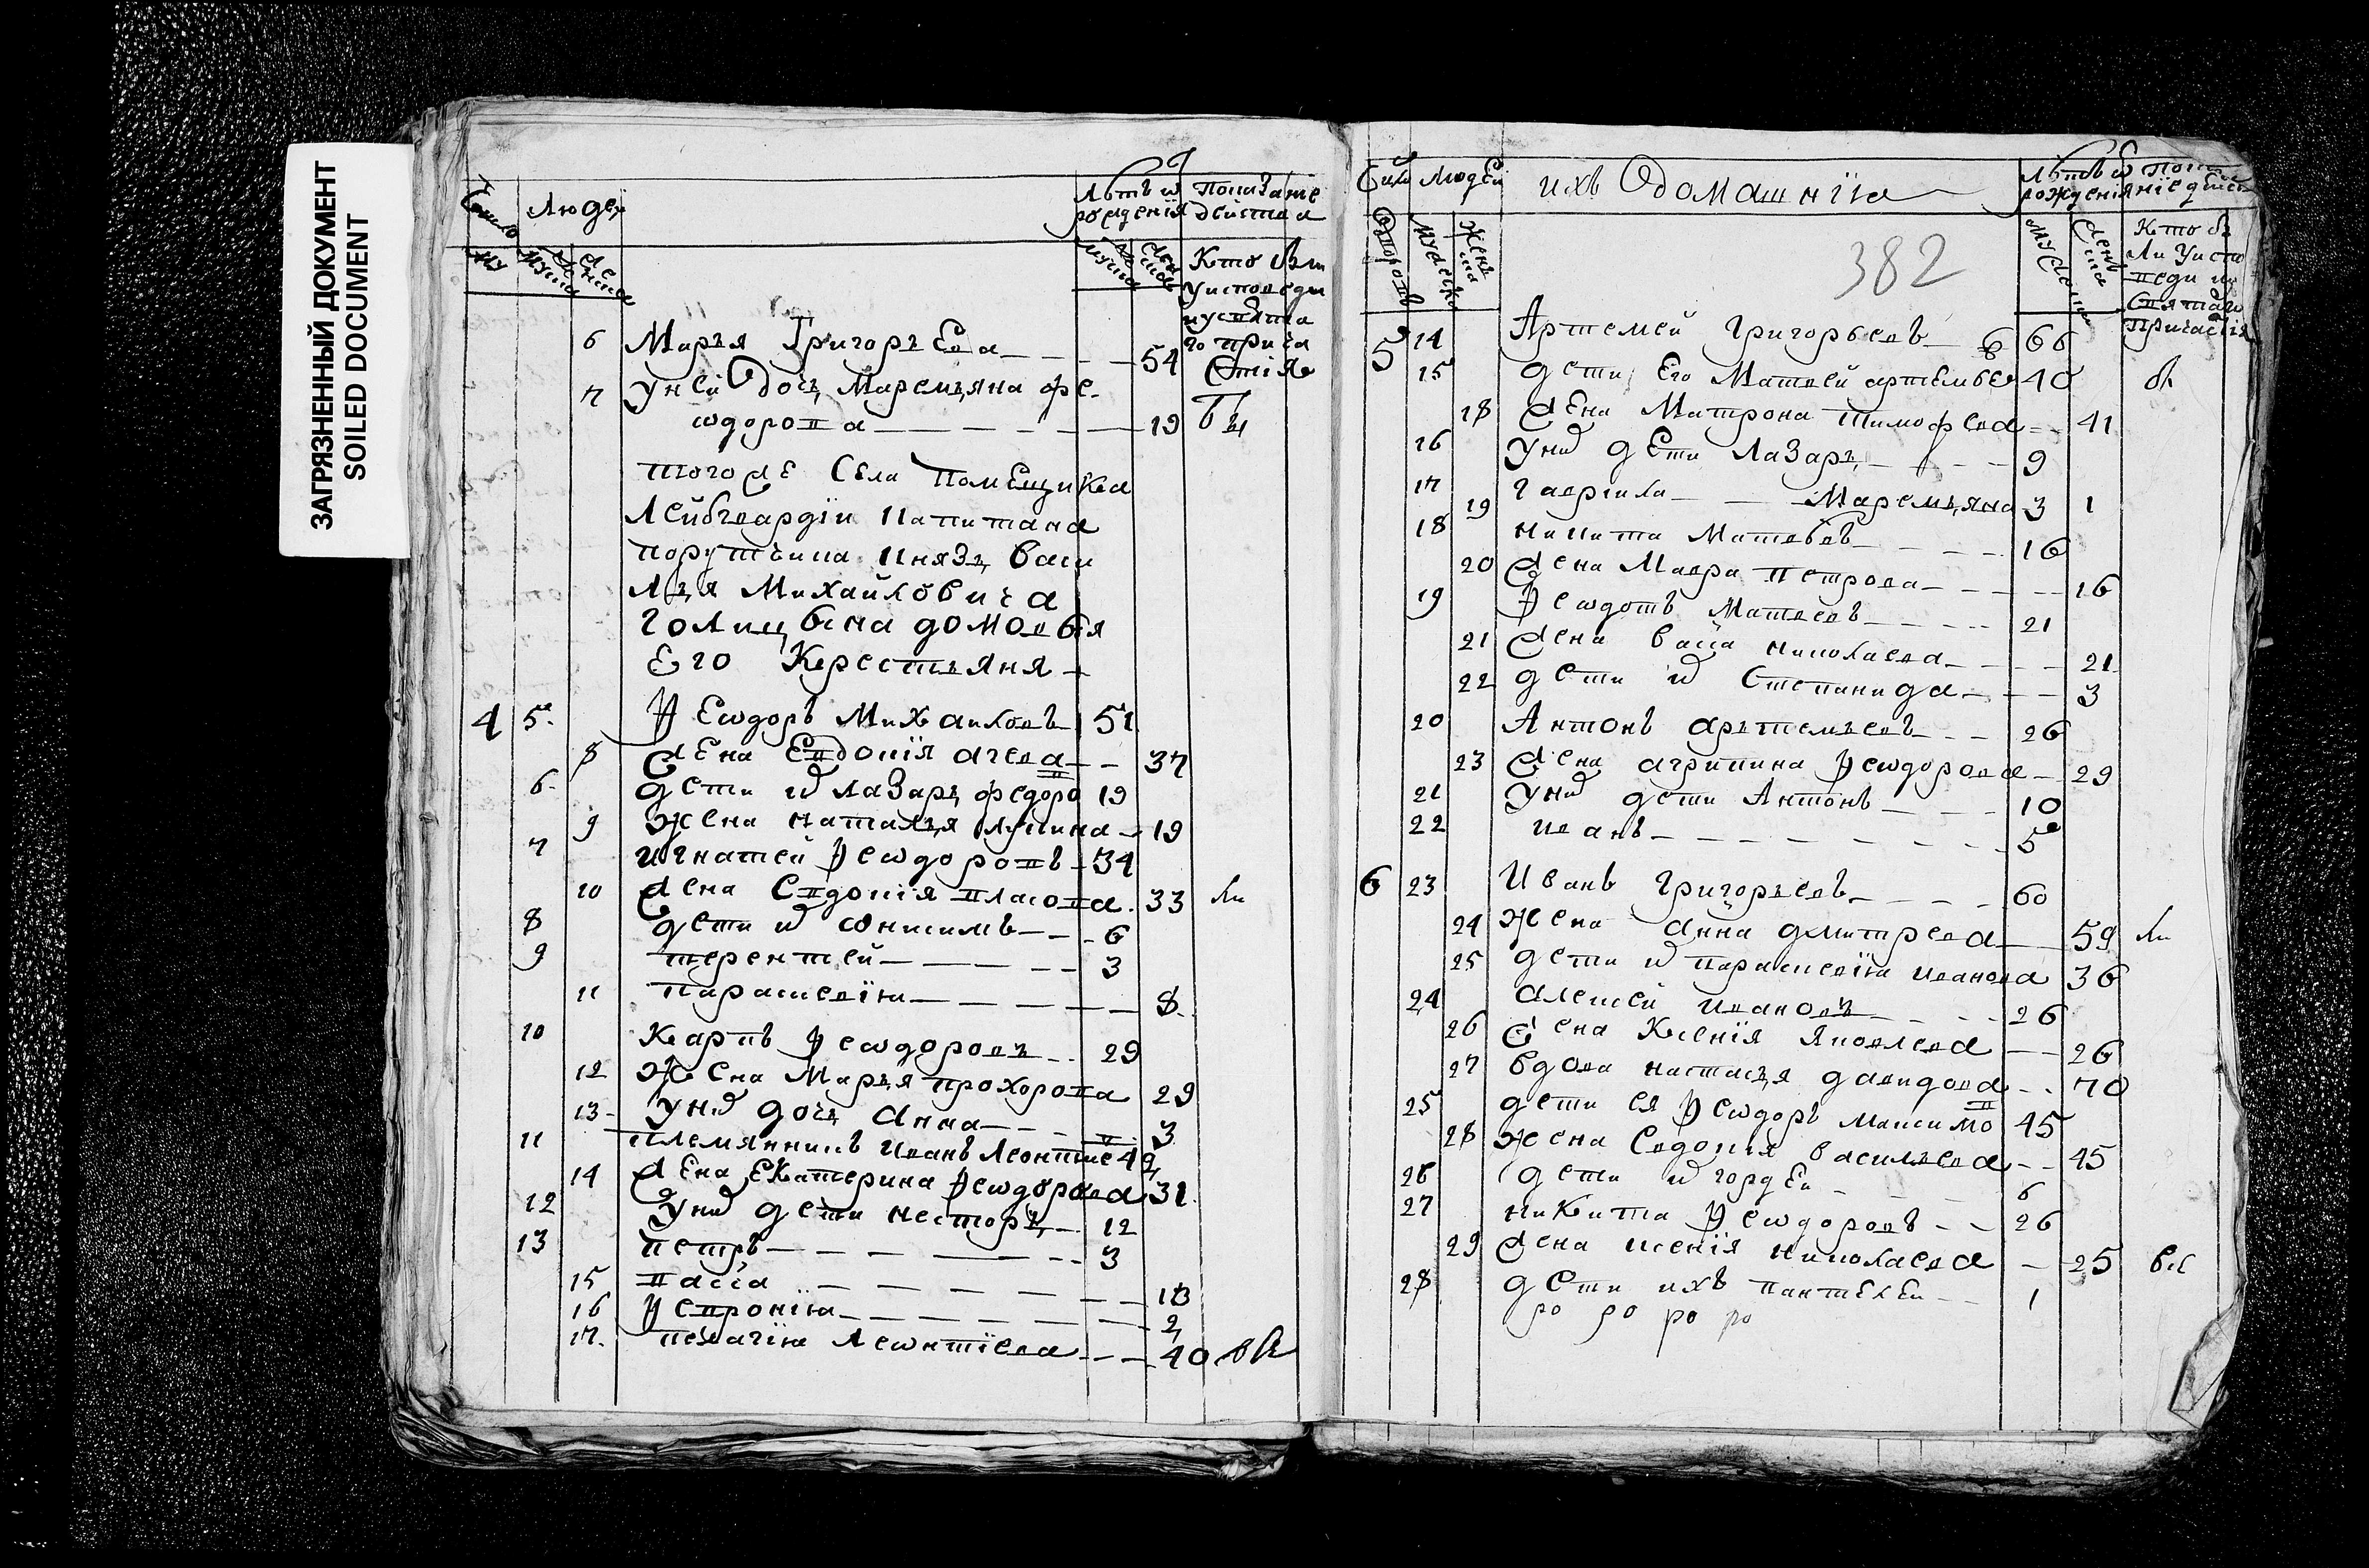 ЗАГРЯЗНЕННЫЙ ДОКУМЕНТ
SOILED DOCUMENT
Число Людей
Лѣтъ ѿ рожденія
Показание действа
муска женска
муска женска
Кто былъ
у исповеди
и у свята
го прича
стія
6 Марья Григорьева 54
7 у неи дочь Маремьяна фе
ѡдорова 19 бы
тогоже Села помещика
Лейбгвардіи капитана
порутчика князь Васи
лья Михайловича
Голицына домовыя
Его Крестьяня
4 5 Ѳеѡдоръ Михаиловъ 51
8 жена Евдокія агеева 37
6 дети их Лазарь федоро 19
9 жена наталья лукина 19
7 игнатей Ѳеѡдоровъ 34
10 жена Евдокія власова 33 ли
8 дети их ѡнисимъ 6
9 терентей 3
11 парасковія 8
10 Карпъ Ѳеѡдоровъ 29
12 жена Марья прохорова 29
13 у них дочь анна 3
11 племянникъ иванъ Леонтиев 42
14 жена Екатерина Ѳеѡдорова 31
12 у них дети несторъ 12
13 петръ 3
15 васса 13
16 Ѳевронія 2
17 пелагія Леѡнтіева 40 всѣ
Число людей ихъ домашнія
Лѣтъ ѿ рожденія
показаніе действ
Дворовъ мускa женска
муска женска
Кто бы
ли у испо
веди и
святаго
причастія
382
5 14 Артемей Григорьевъ 66
15 дети Его Матвей артемьев 40 бы
18 жена Матрона тимофеева 41
16 у них дети Лазарь 9
17 19 гаврила Маремьяна 3 1
18 никита Матвевъ 16
20 жена Мавра петрова 16
19 Ѳеѡдотъ Матвеевъ 21
21 жена васса николаева 21
22 дети их Степанида 3
20 Антонъ артемьевъ 26
23 жена агрипина Ѳеѡдорова 29
21 у них дети Антонъ 10
22 иванъ 5
6 23 Иванъ Григорьевъ 60
24 жена анна дмитреева 59 ли
25 дети их парасковія иванова 36
24 алексей ивановъ 26
26 жена Ксенія Яковлева 26
27 вдова настасья давидова 70
25 дети ея Ѳеѡдоръ Максимо 45
28 жена Евдокія васильева 45
26 дети их гордей 6
27 никита Ѳеѡдоровъ 26
29 жена ксенія николаева 25 всѣ
28 дети ихъ пантелей 1
ро ро ро ро